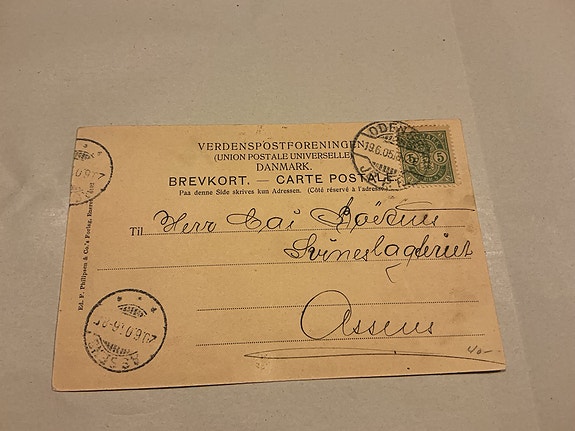 VERDENSPOSTFORENINGEN
(UNION POSTALE UNIVERSELLE)
DANMARK.
BREVKORT. — CARTE POSTALE
Paa denne Side skrives kun Adressen. (Côté réservé à l'adresse.)
ODEN
19.6.05
5
Til Herr Cai
Svineslagteriet
Assens
40-
Ed. F. Philipsen & Co.'s Forlag.
ASSENS